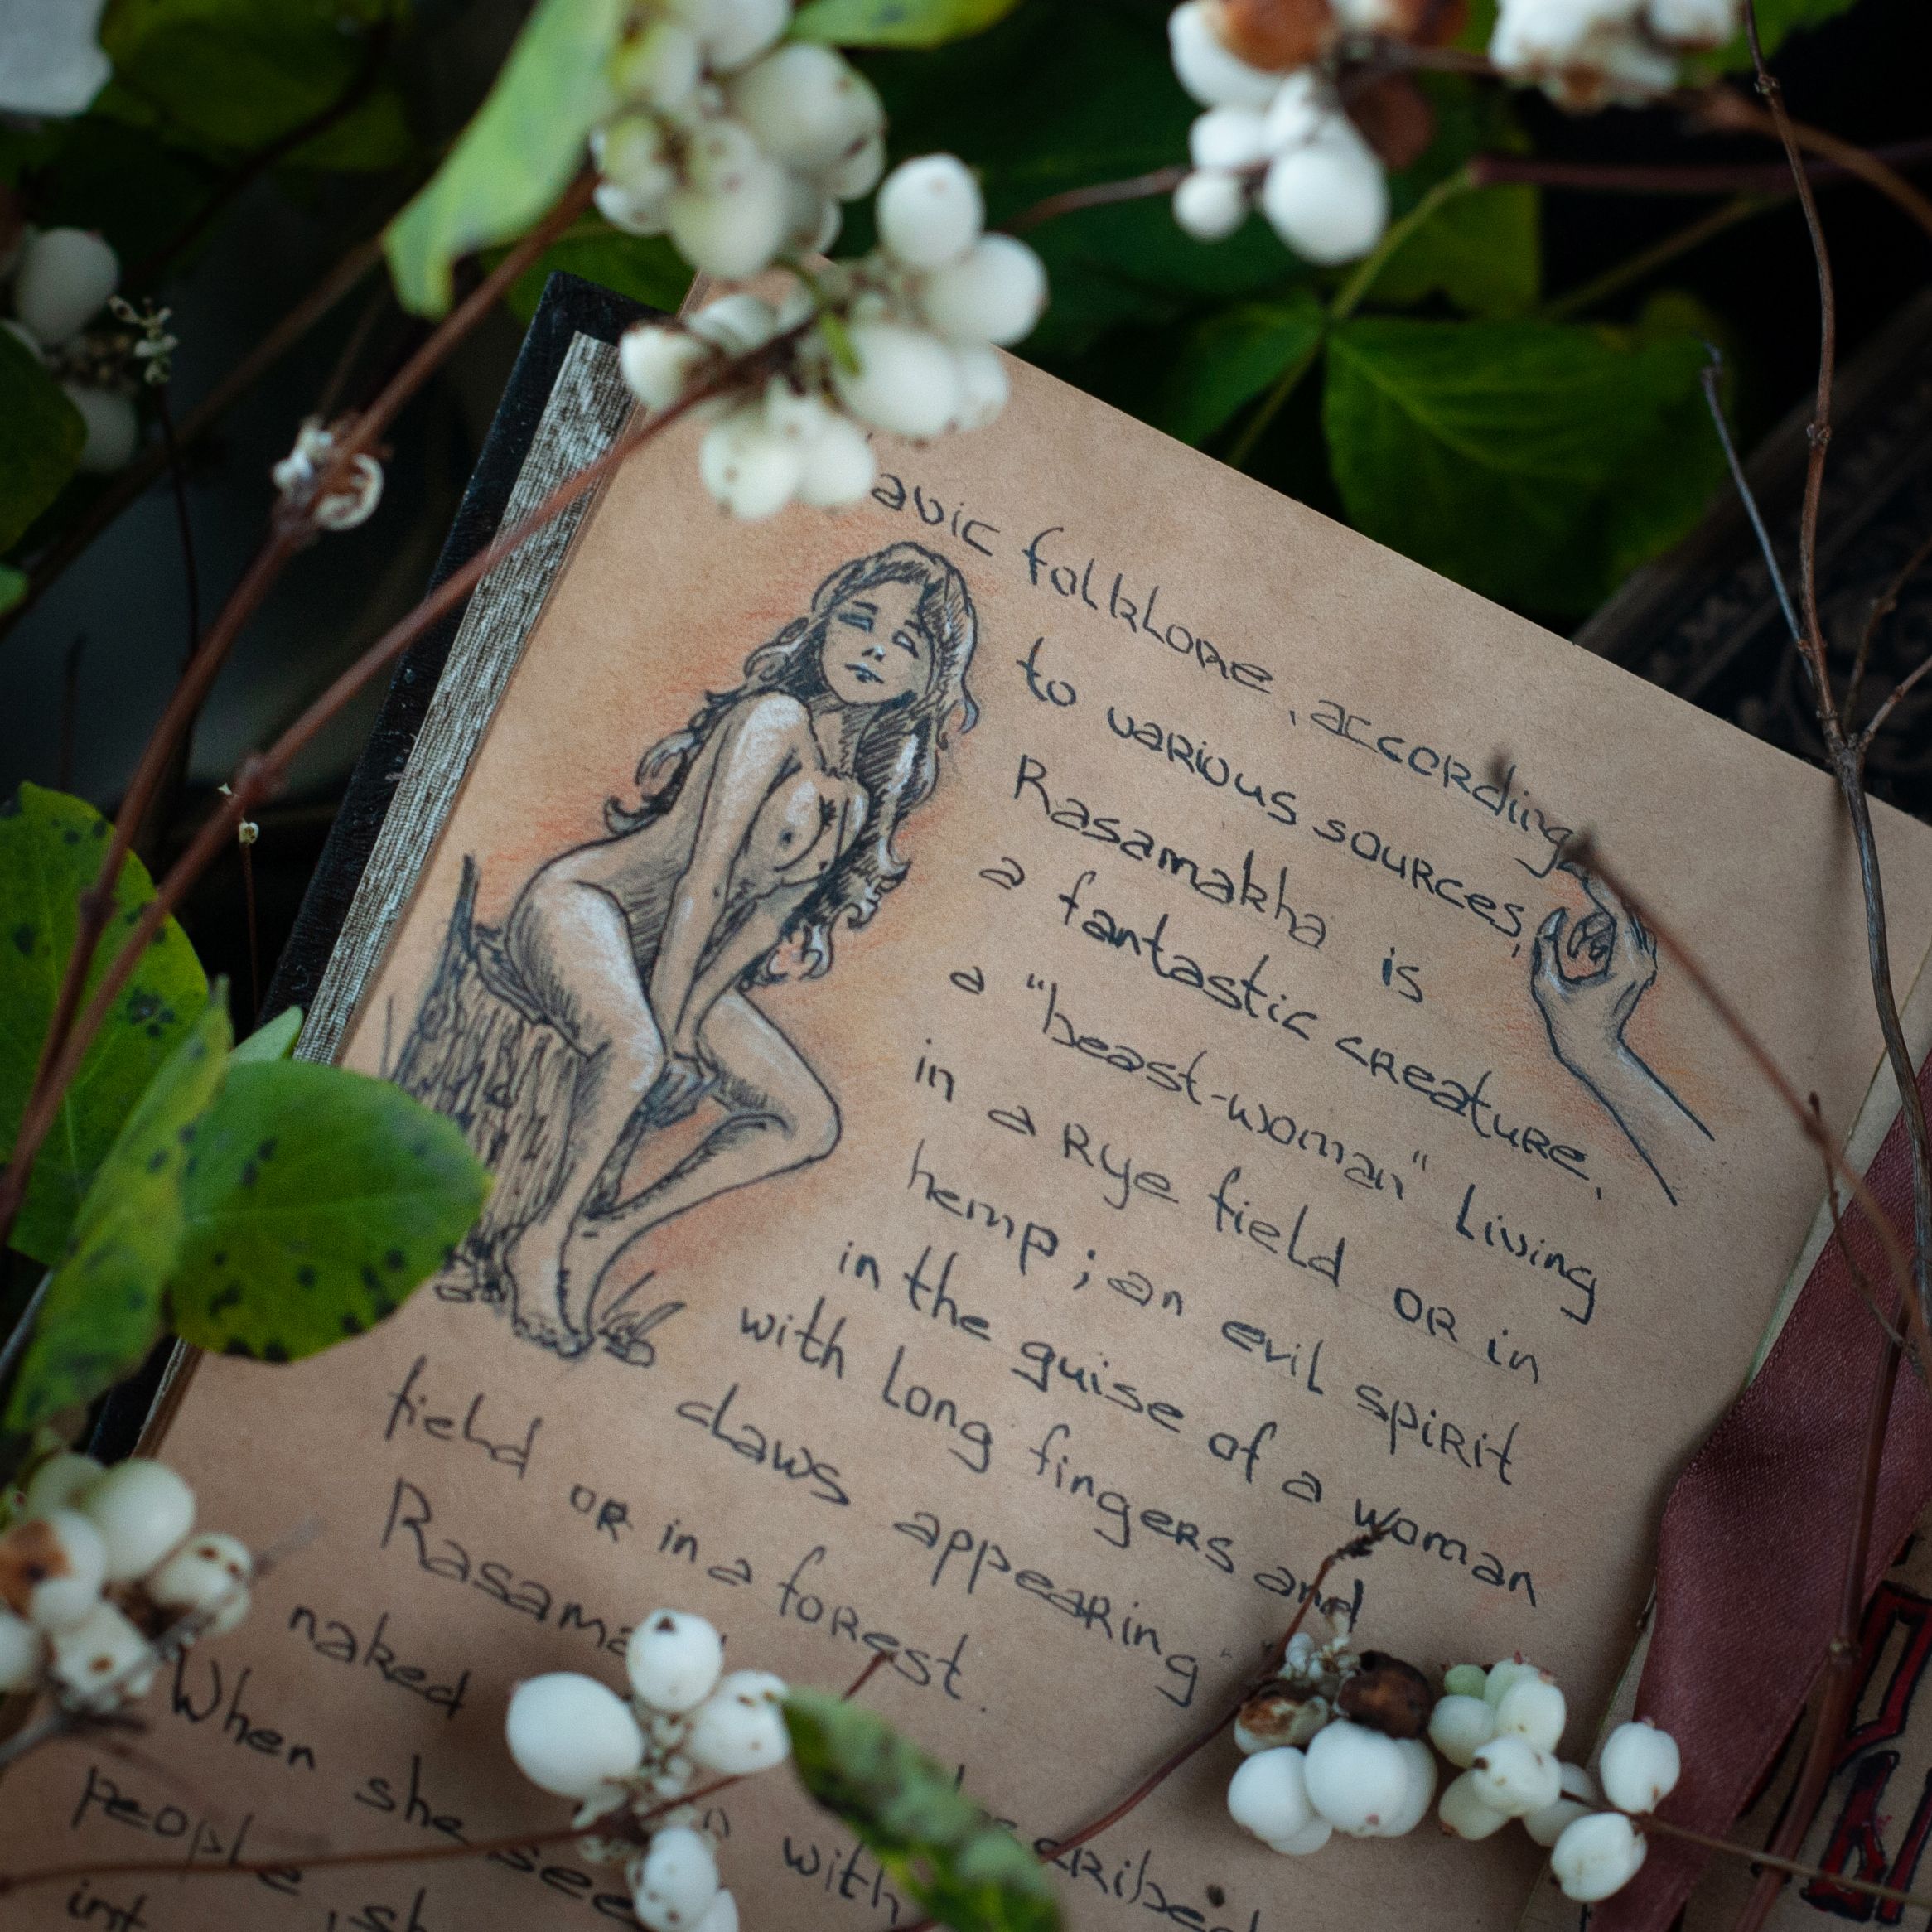 folklore, according
to various sources,
Rasamakha is
a fantastic creature,
a "beast-woman" living
in a rye field or in
hemp; an evil spirit
in the guise of a woman
with long fingers and
claws appearing
field or in a forest.
naked
When she
people with